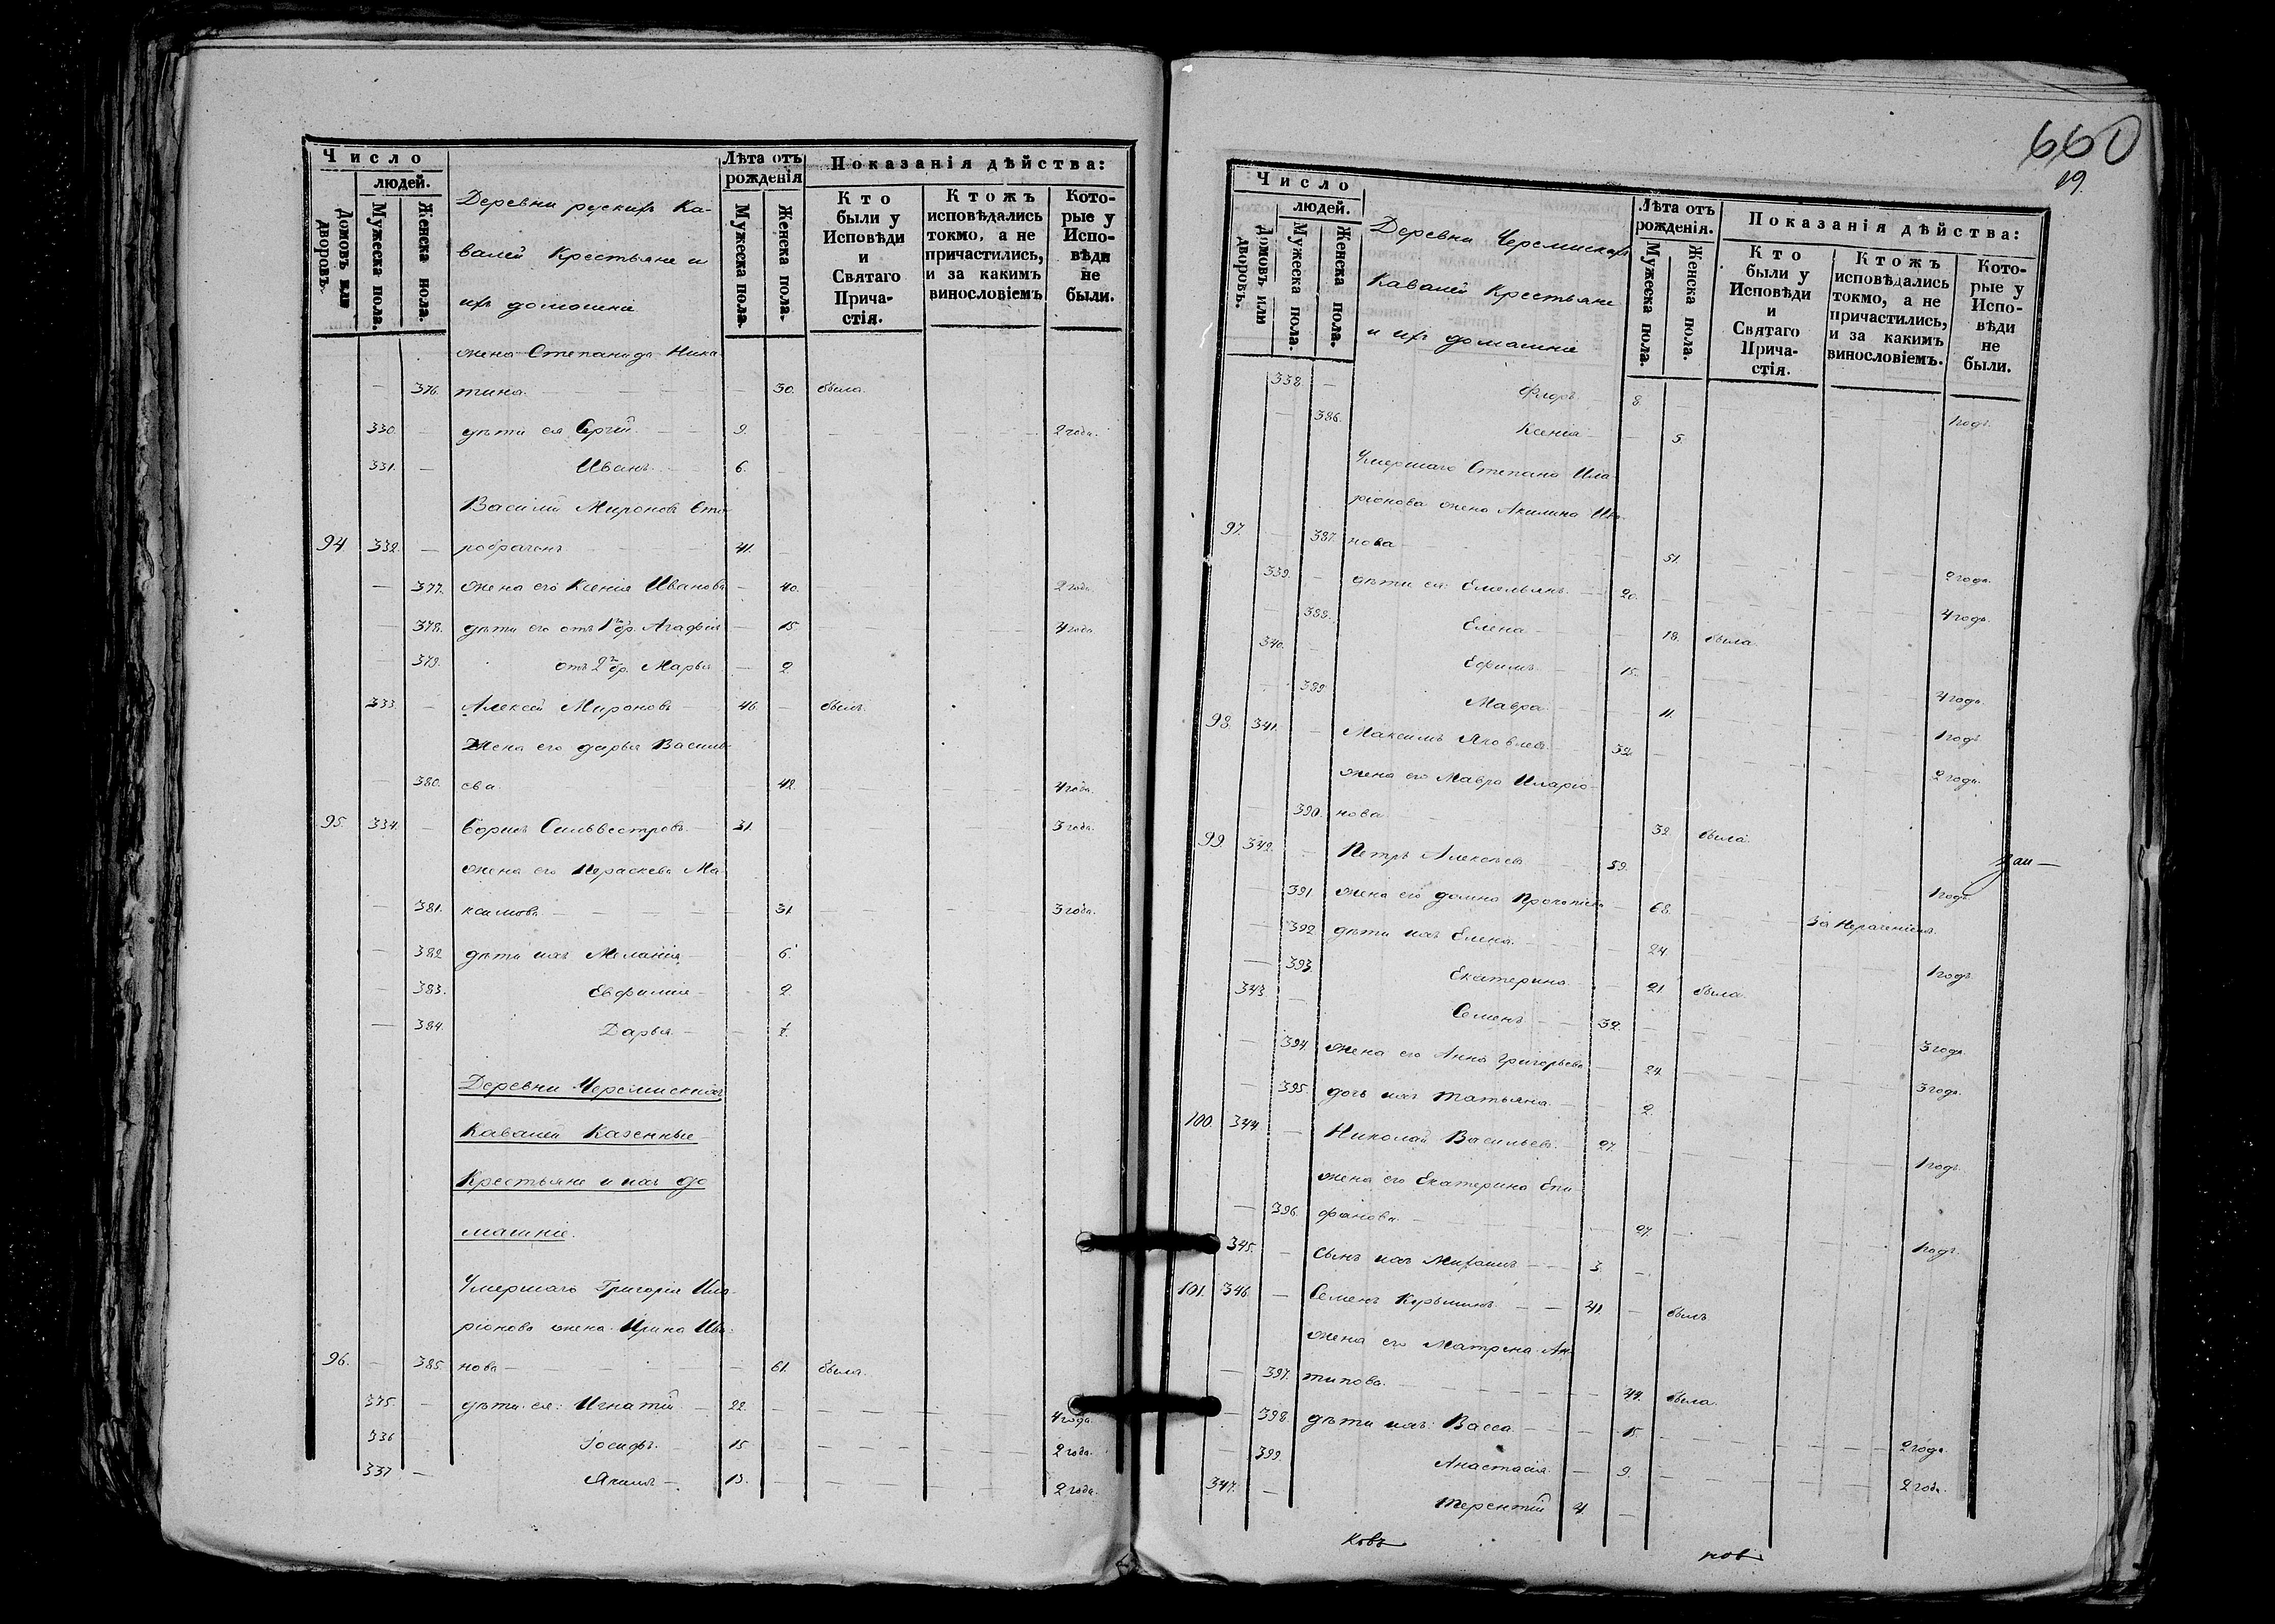 Число
людей.
Домовъ или дворовъ.
Мужеска пола.
Женска пола.
Деревни рускихъ Ка-
валей Крестьяне и
ихъ домашніе
Лѣта отъ рожденія
Мужеска пола.
Женска пола.
Показанія дѣйства:
Кто были у Исповѣди и Святаго Причастія.
Ктожъ исповѣдались токмо, а не причастились, и за какимъ винословіемъ
Которые у Исповѣди не были.
жена Степанида Ники
376. тина 30. была
330. дѣти ея Сергій 9. 2 года.
331. Иванъ 6.
Василій Мироновъ Ста-
94 332. 41.
377. жена его Ксенія Иванова 40. 2 года
378. дѣти его отъ 1го бр. Агафія 15 4 года
379. отъ 2го бр. Марья 2
333 Алексей Мироновъ 46. былъ.
Жена его дарья Василь-
380. ева 42. 4 года.
95. 334. Борисъ Сильвестровъ 31. 3 года.
жена его Параскева Ма
381. ксимова 31. 3 года.
382 дѣти ихъ Меланія 6.
383. Евфимія 2
384. Дарья
Деревни Черемискихъ
Кавалей Казенные
Крестьяне и ихъ до
машніе.
Умершаго Григорія Ила-
ріонова жена Ирина Ива-
96. 385. нова 61. была.
335. дѣти ея: Игнатій 22. 4 года.
336 Іосифъ. 15. 2 года.
337 Якимъ 13. 2 года.
660
19.
Число
людей.
Домовъ или дворовъ.
Мужеска пола.
Женска пола.
Деревни Черемискихъ
Кавалей Крестьяне
и ихъ домашніе
Лѣта отъ рожденія.
Мужеска пола.
Женска пола.
Показанія дѣйства:
Кто были у Исповѣди и Святаго Причастія.
Ктожъ исповѣдались токмо, а не причастились, и за какимъ винословіемъ.
Которые у Исповѣди не были.
338. Флоръ 8. 1 годъ.
386. Ксенія 5.
Умершаго Степана Ила-
ріонова жена Акилина Ива-
97. 387. нова 51. 2 года.
339. дѣти ея: Емельянъ. 20. 4 года.
388. Елена 18. была.
340. Ефимъ 15. 4 года.
389. Мавра 11. 1 годъ.
98. 341. Максимъ Яковлевъ 32 2 года.
жена его Мавра Иларіо-
390. нова 32. была
99. 342. Петръ Алексѣевъ 59. 1 годъ.
391 жена его домна Прокопіева 68. за нераченіемъ.
392 дѣти ихъ Елена. 24. 1 годъ
393. Екатерина 21. была.
343. Семенъ 32. 3 года.
394. жена его Анна Григорьева 24. 3 года.
395. дочь ихъ Татьяна. 2.
100. 344. Николай Васильевъ 27. 1 годъ.
жена его Екатерина Епи-
396. фанова. 27. 1 годъ.
345. сынъ ихъ Михаилъ 3.
101. 346. Семенъ Курьминъ. 41. былъ
жена его Матрена Ан-
397. типова. 44. была.
398. дѣти ихъ: Васса 15. 2 года.
399. Анастасія. 9. 2 года.
347. Терентій 4.
ковъ